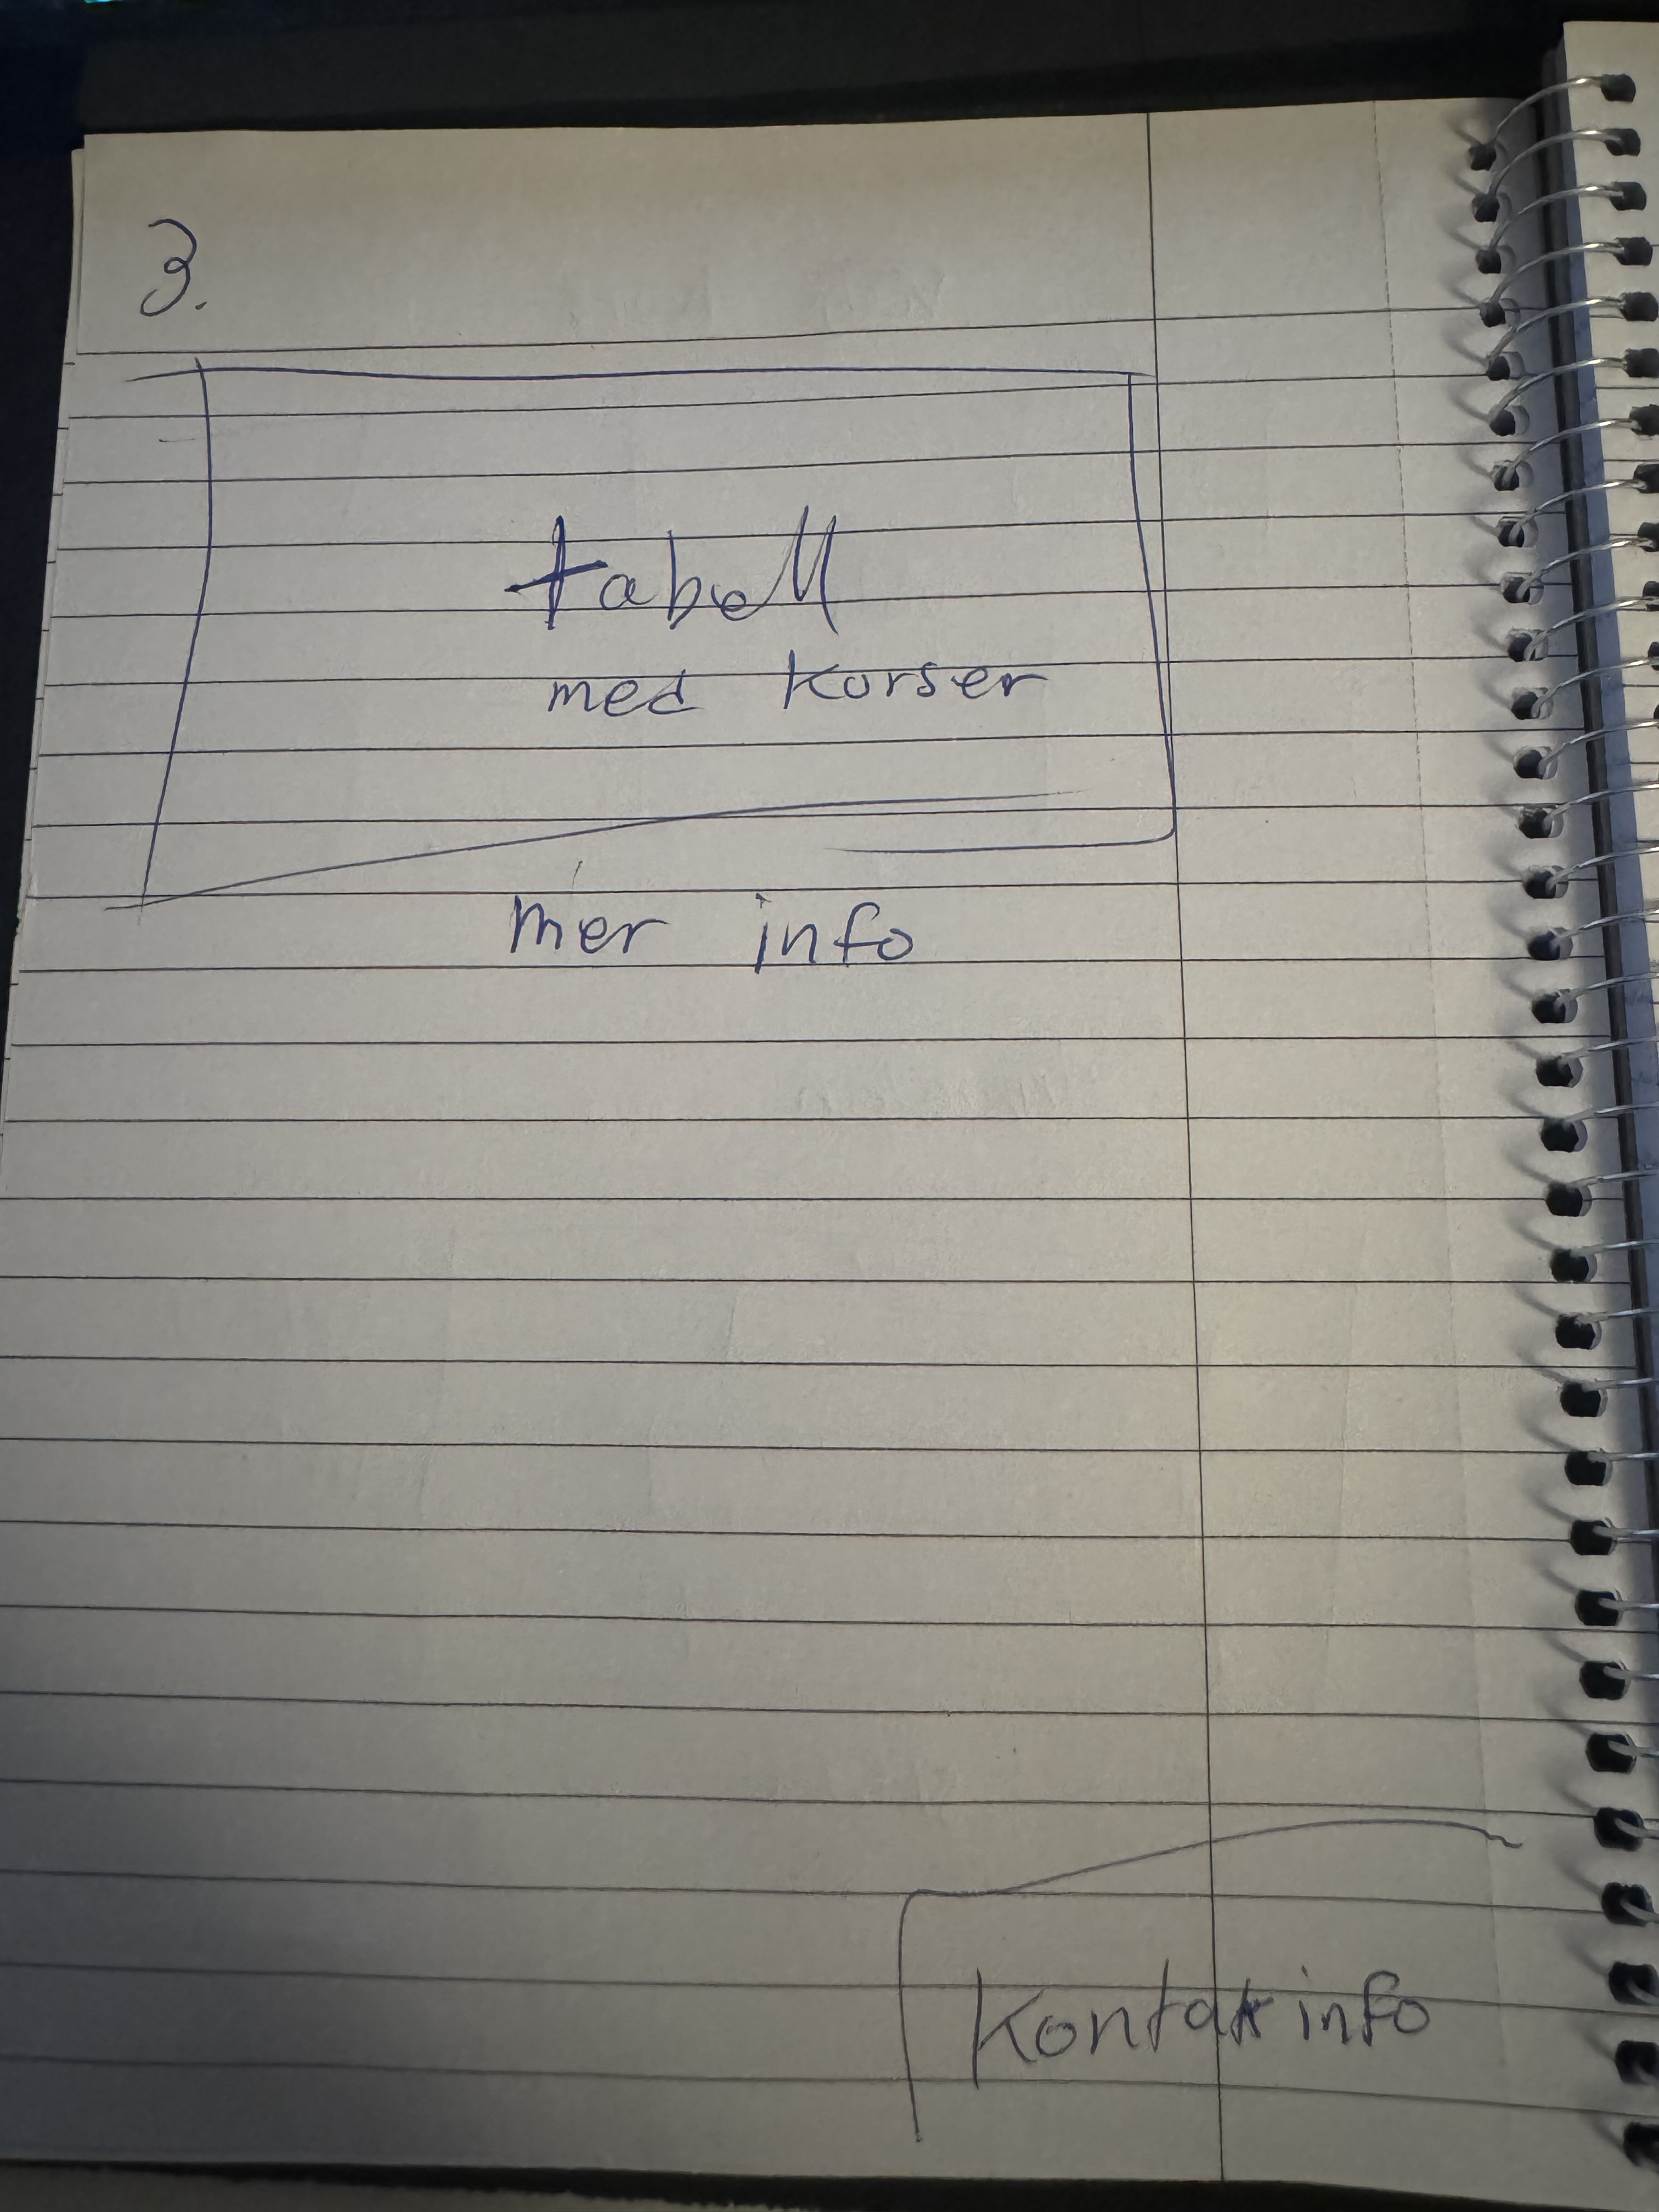 3.
tabell
med kurser
mer info
Kontakt info